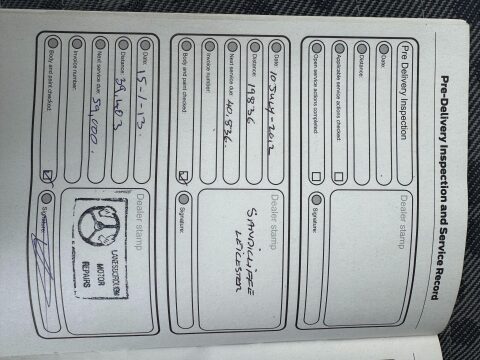 Pre-Delivery Inspection and Service Record
Pre Delivery Inspection
Date:
Distance:
Applicable service actions checked:
Open service actions completed:
Dealer stamp
Signature:
Date: 10 JULY - 2012
Distance: 19836
Next service due: 40,836.
Invoice number:
Body and paint checked:
Dealer stamp
SANDICLIFFE
LEICESTER
Signature:
Date: 15-1-13.
Distance: 39,603
Next service due: 59,000.
Invoice number:
Body and paint checked:
Dealer stamp
LANESBOROUGH
MOTOR
REPAIRS
Signature: